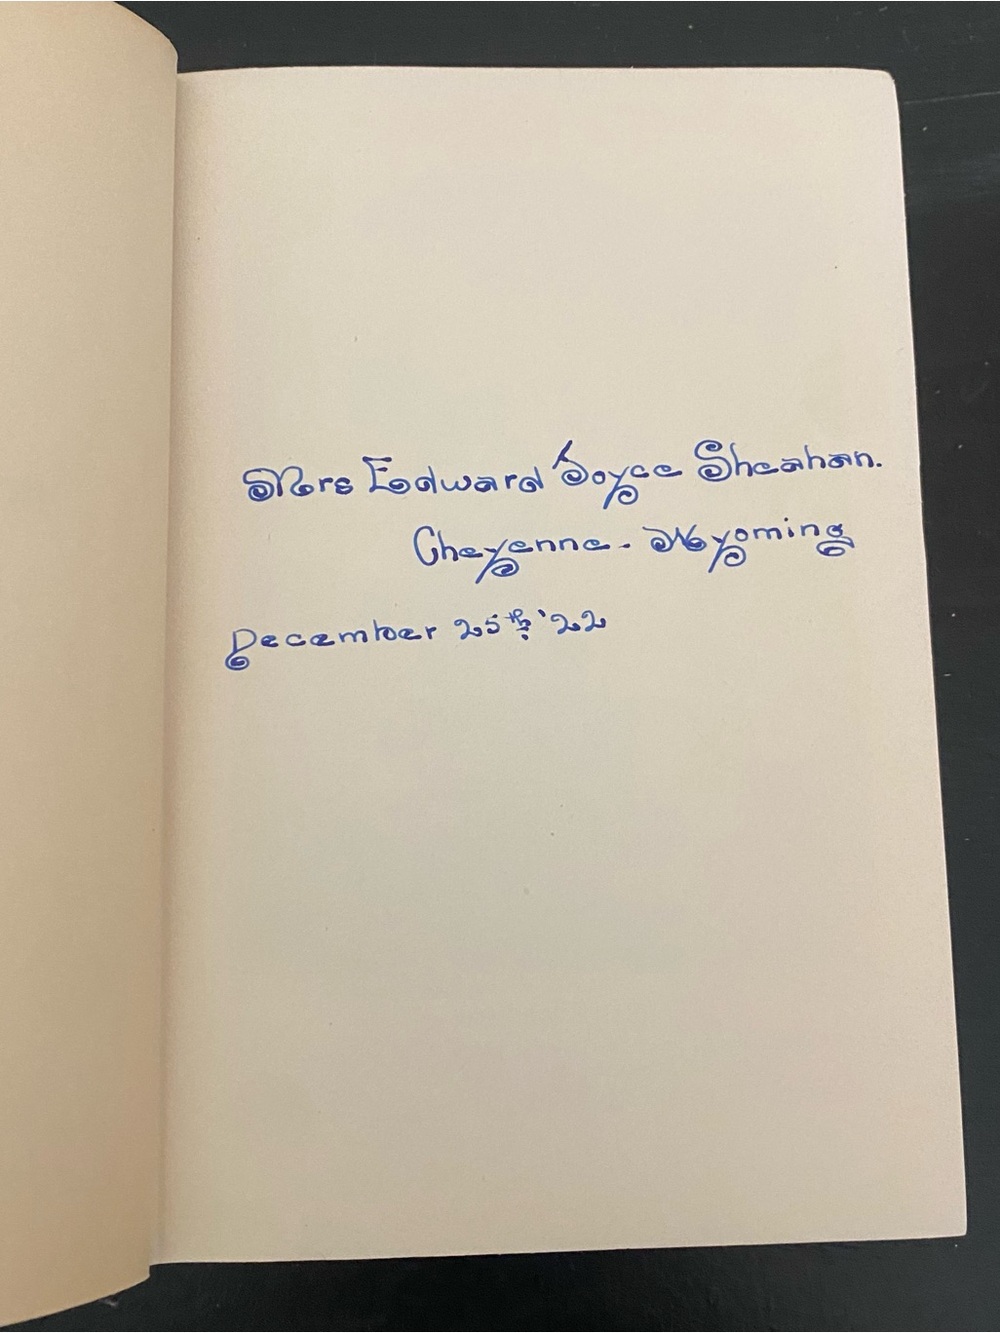 Mrs Edward Joyce Sheahan.
Cheyenne - Wyoming
December 25th '22